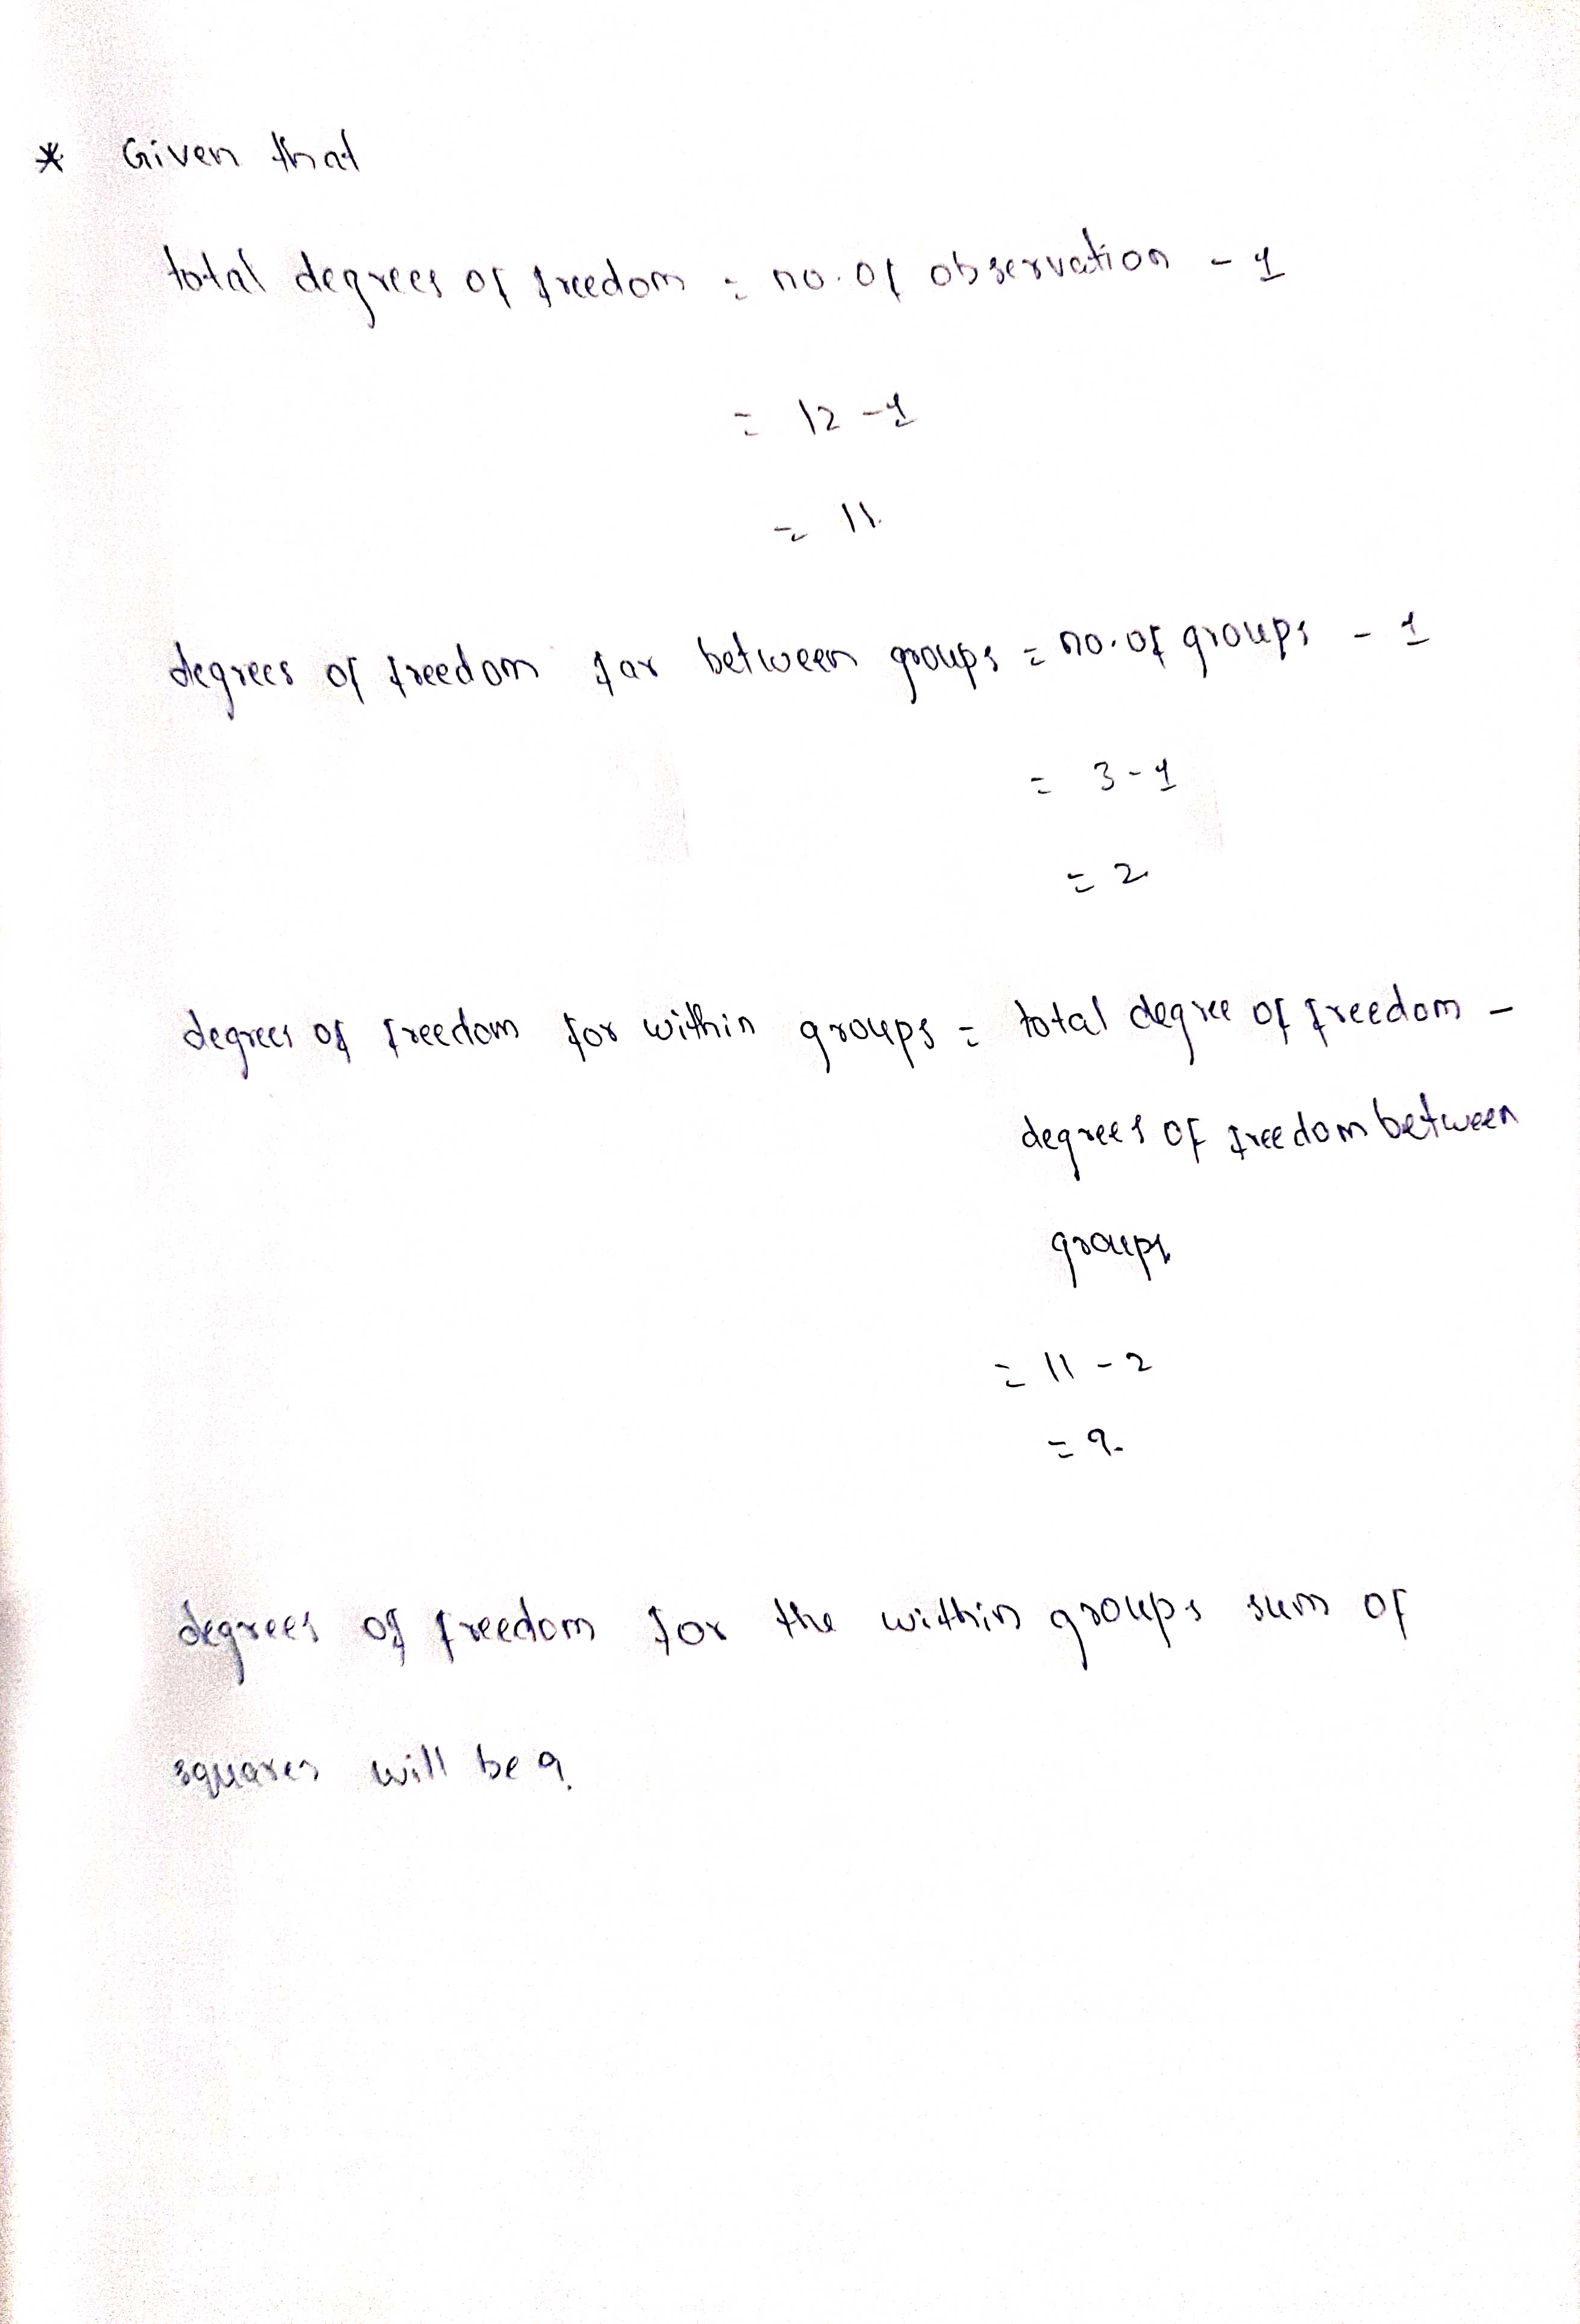 * Given that
total degrees of freedom = no. of observation - 1
= 12 - 1
= 11.
degrees of freedom for between groups = no. of groups - 1
= 3 - 1
= 2.
degrees of freedom for within groups = total degree of freedom -
degrees of freedom between
groups.
= 11 - 2
= 9.
degrees of freedom for the within groups sum of
squares will be 9.